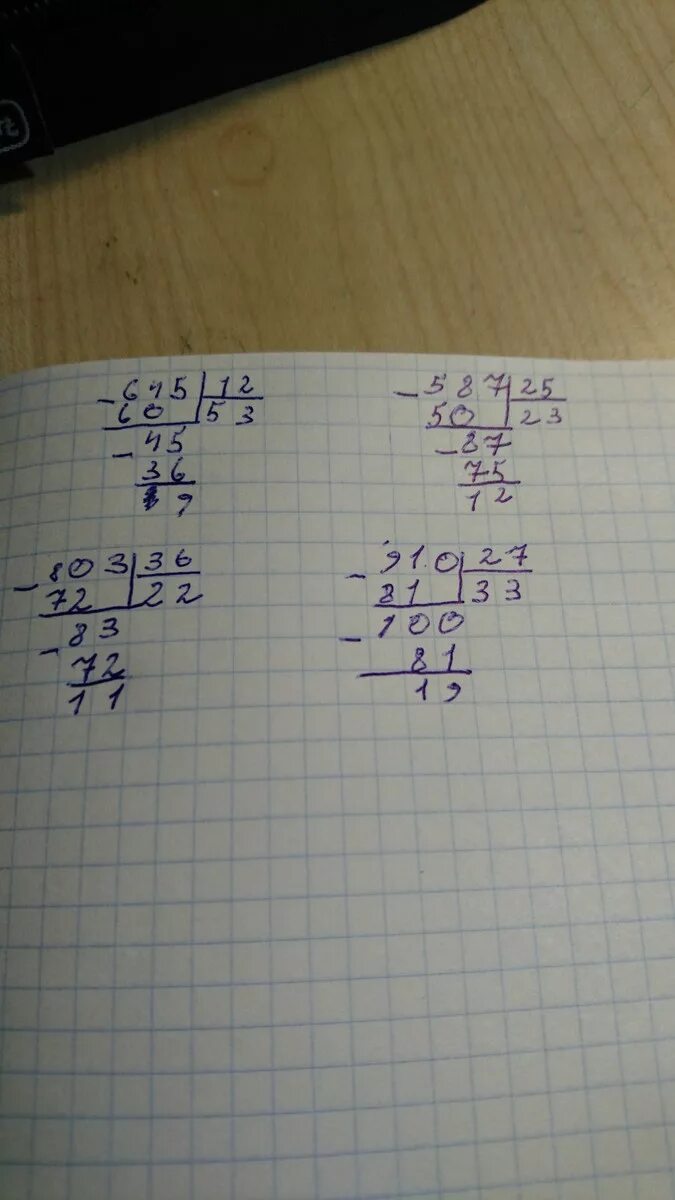 -645 12
60 53
-45
36
9
-587 25
50 23
-87
75
12
-803 36
72 22
-83
72
11
-910 27
81 33
-100
81
19